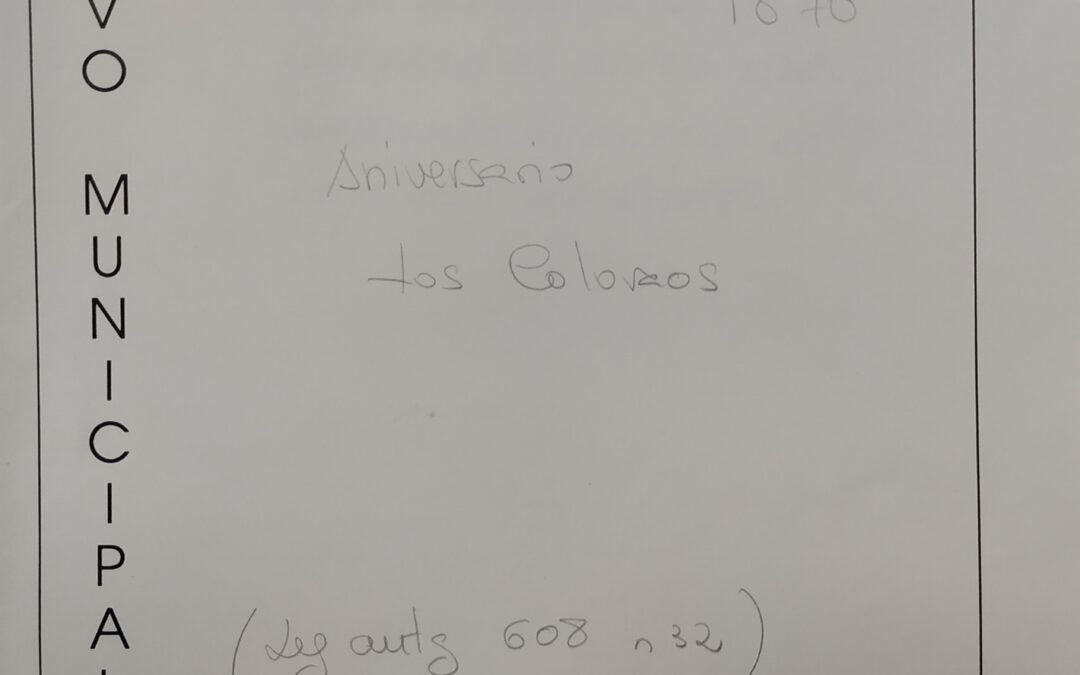 VO MUNICIPAL
1870
Aniversario
Los Coloraos
(Leg antg 608 n 32)